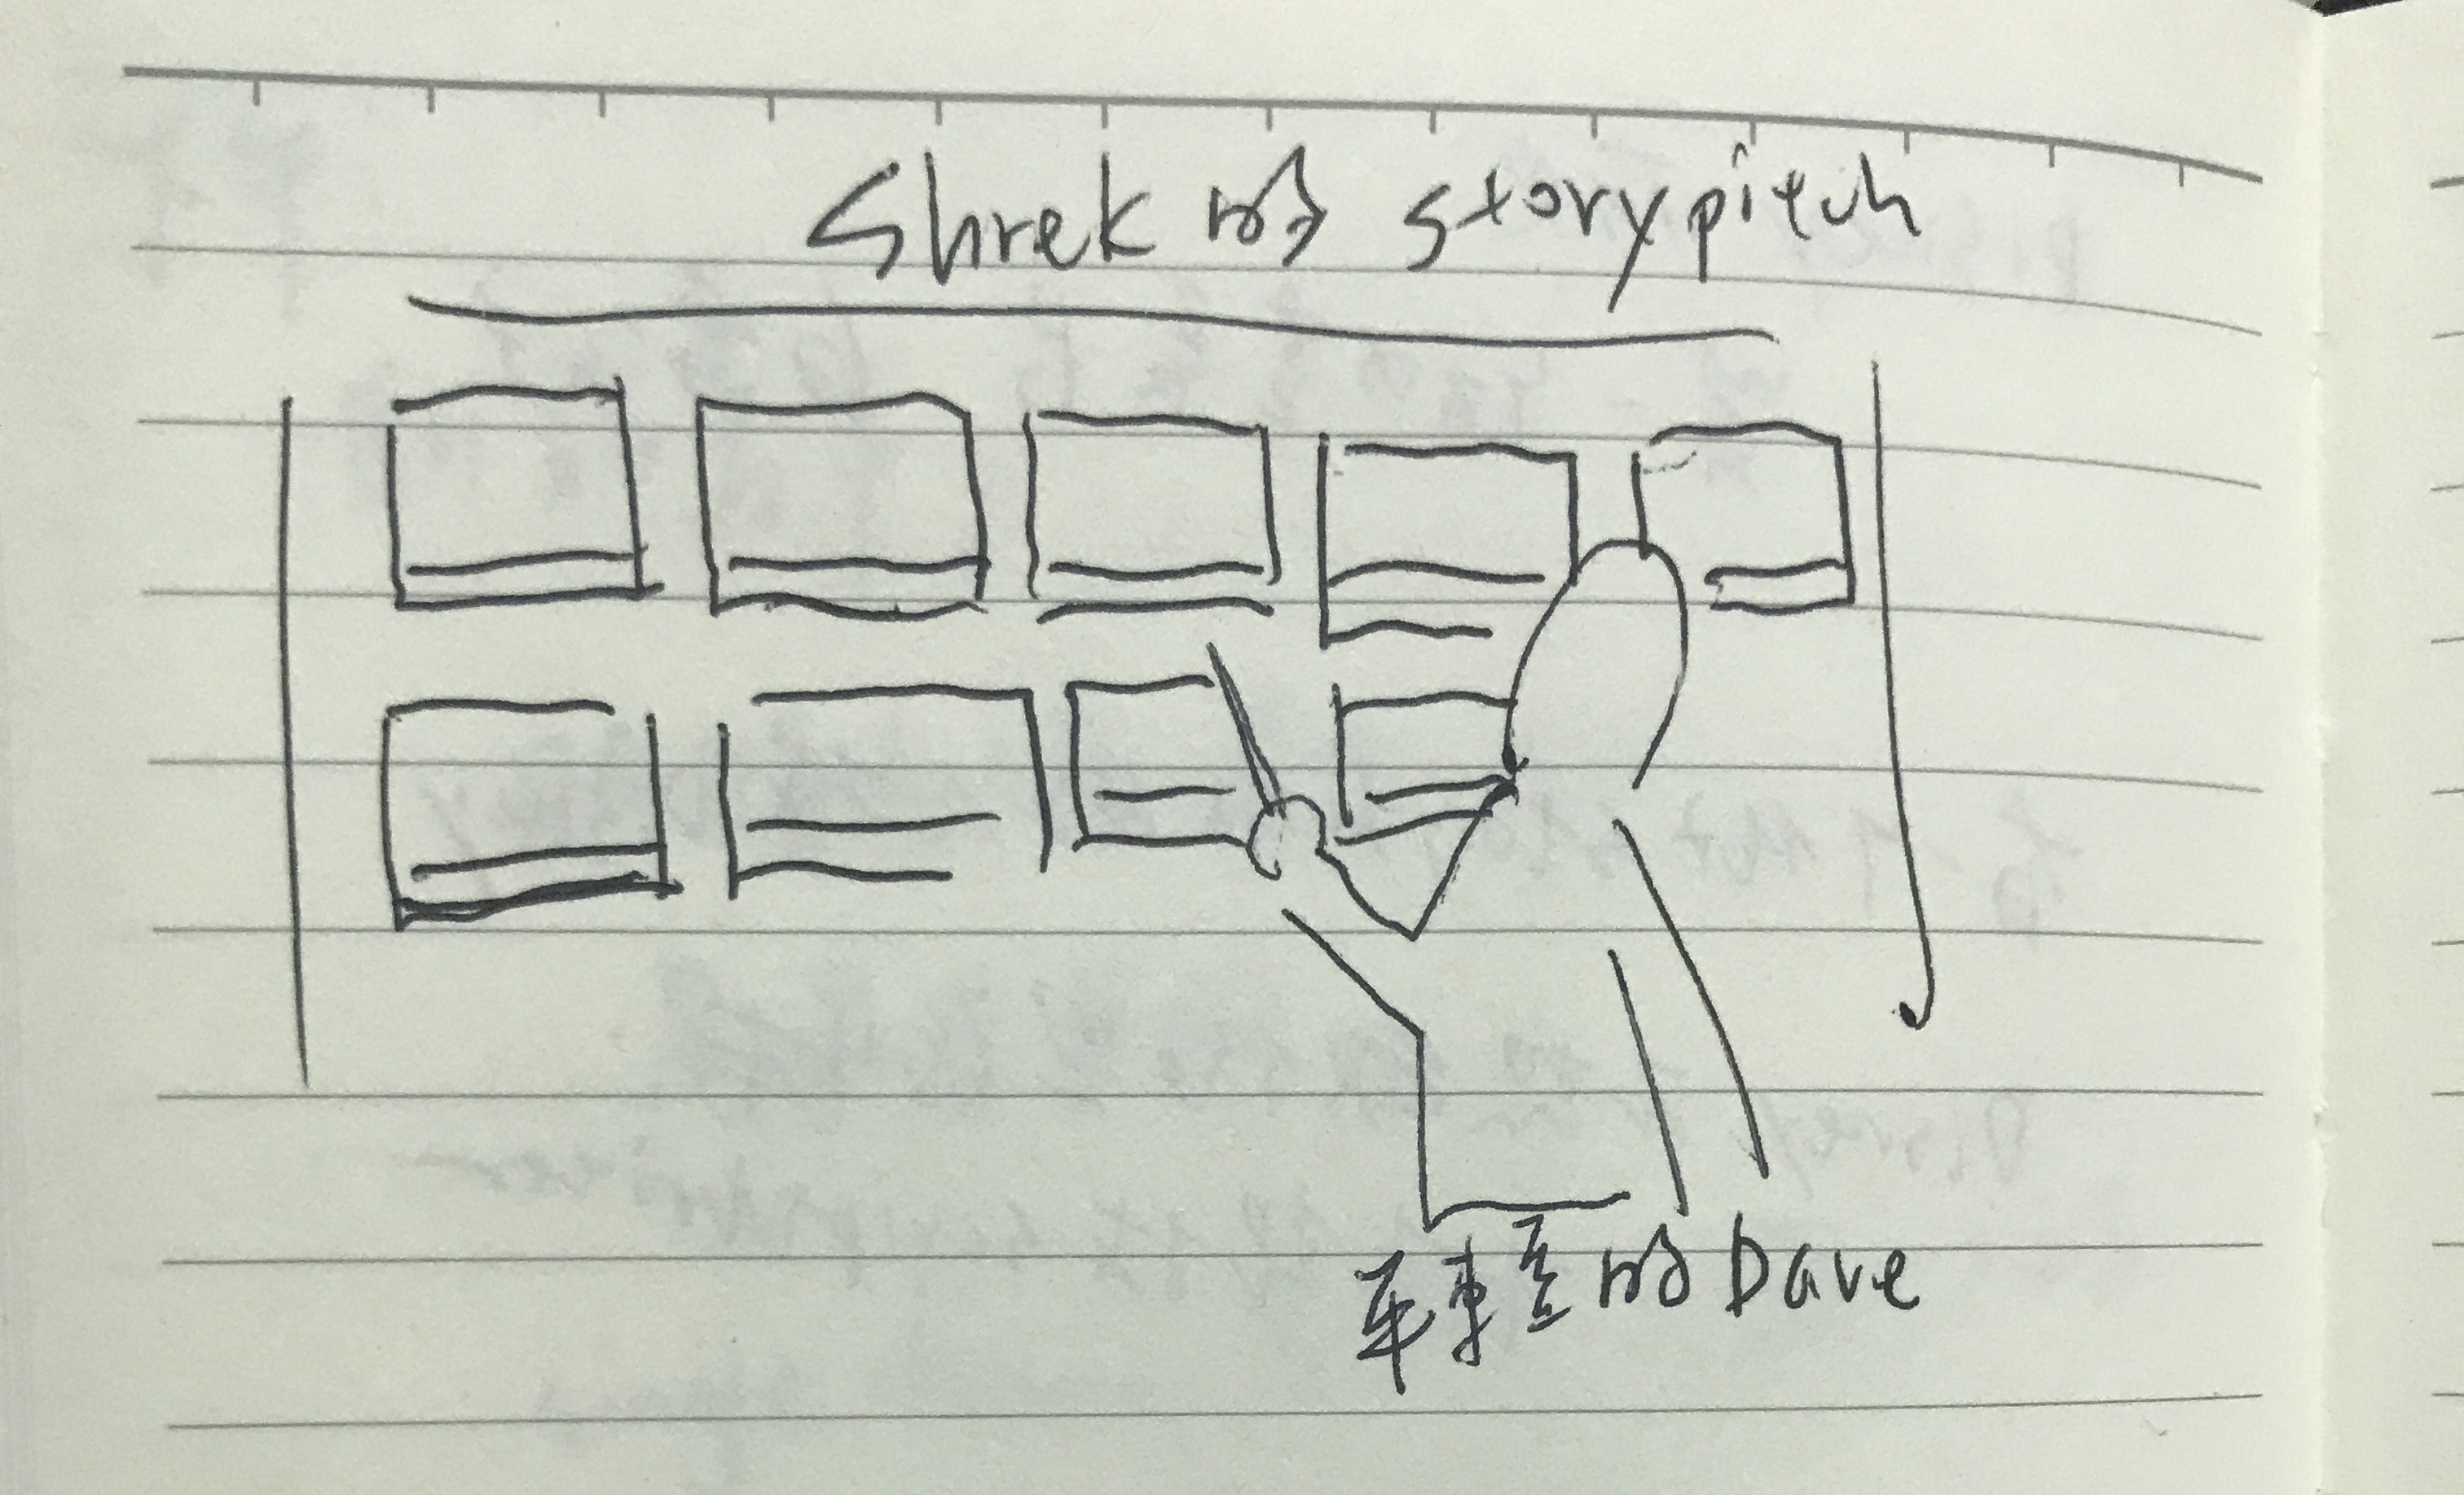 Shrek 的 story pitch
年轻的 Dave